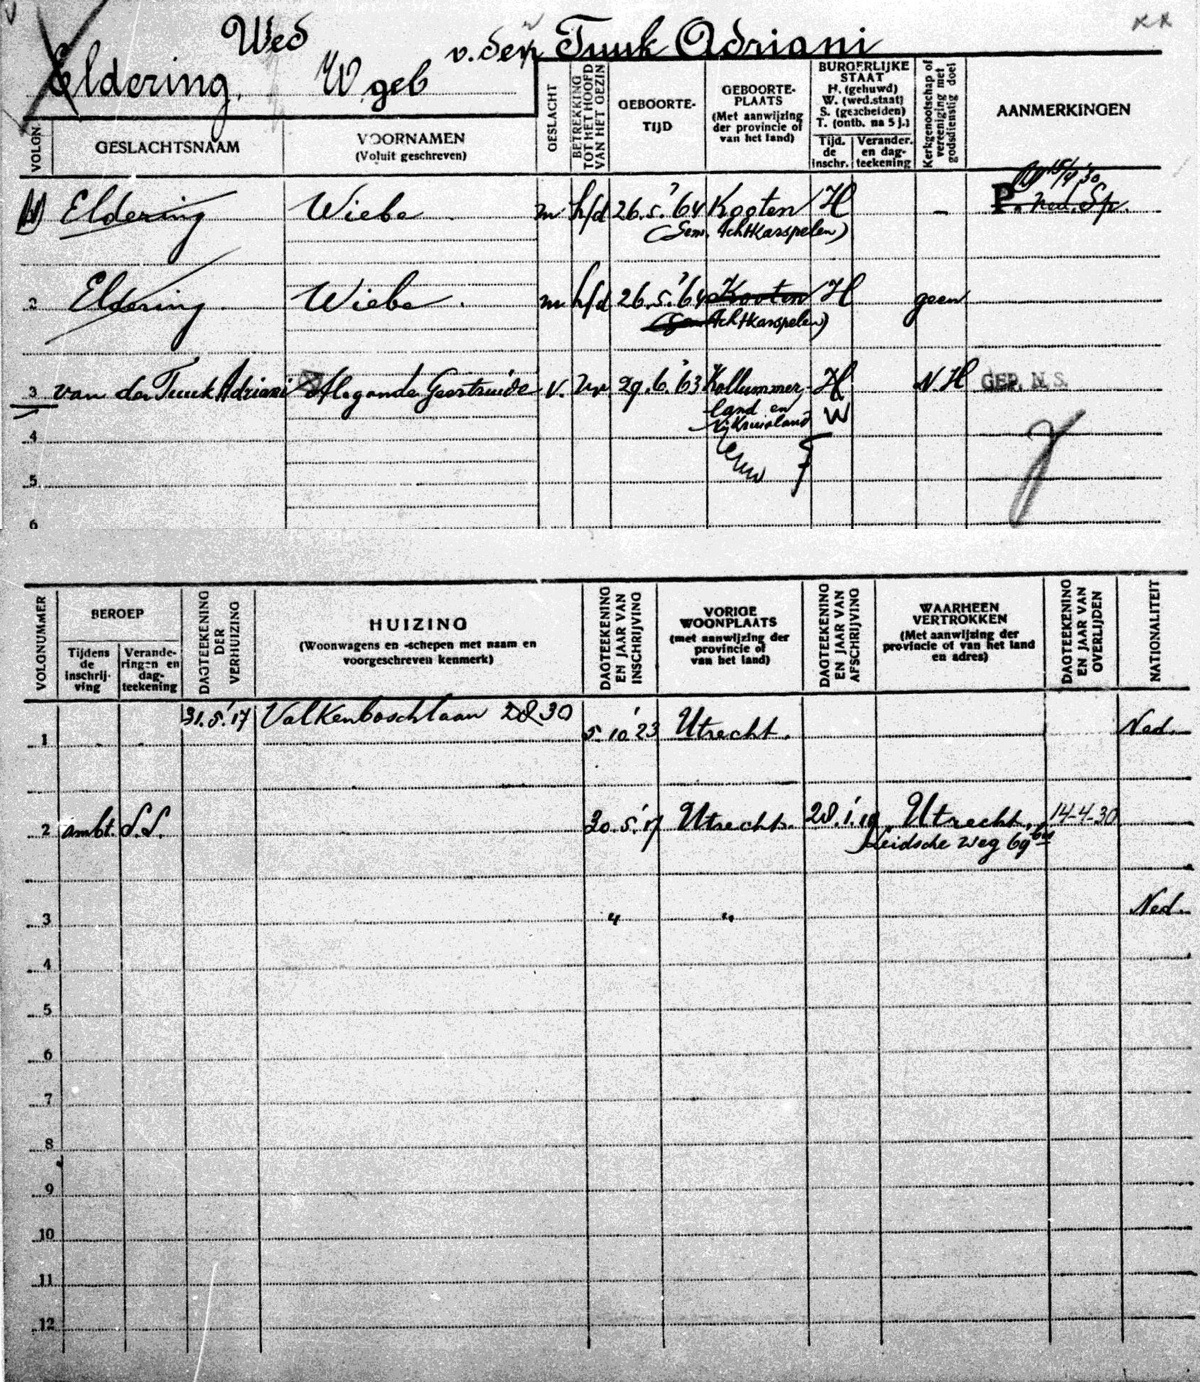 Wed
v. der Tuuk Adriani
Eldering, W geb
VOLGN.
GESLACHTSNAAM
VOORNAMEN
(Voluit geschreven)
GESLACHT
BETREKKING TOT HET HOOFD VAN HET GEZIN
GEBOORTE-
TIJD
GEBOORTE-
PLAATS
(Met aanwijzing
der provincie of
van het land)
BURGERLIJKE
STAAT
H. (gehuwd)
W. (wed.staat)
S. (gescheiden)
T. (ontb. na 5 j.)
Tijd.
de
inschr.
Verander.
en dag-
teekening
Kerkgenootschap of vereeniging met godsdienstig doel
AANMERKINGEN
Eldering Wiebe m hfd 26.5.'64 Kooten H -
(Gem. Achtkarspelen)
15/4 '30
P. Ned.
2 Eldering Wiebe m hfd 26.5.'64 Kooten H geen
(Gem Achtkarspelen)
3 van der Tuuk Adriani Alegonda Geertruida v. vr 29.6.'63 Kollummer- H N.H GEP. N.S.
land en W
Nijkruisland
4
5
6
VOLGNUMMER
BEROEP
Tijdens
de
inschrij-
ving
Verande-
ringen en
dag-
teekening
DAGTEEKENING DER VERHUIZING
HUIZING
(Woonwagens en -schepen met naam en
voorgeschreven kenmerk)
DAGTEEKENING EN JAAR VAN INSCHRIJVING
VORIGE
WOONPLAATS
(met aanwijzing der
provincie of
van het land)
DAGTEEKENING EN JAAR VAN AFSCHRIJVING
WAARHEEN
VERTROKKEN
(Met aanwijzing der
provincie of van het land
en adres)
DAGTEEKENING EN JAAR VAN OVERLIJDEN
NATIONALITEIT
31.5.'17 Valkenboschlaan 2
1 5.10.'23 Utrecht. Ned.
2 ambt. S.S. 30.5.'17 Utrecht. 28.1.'19 Utrecht. 14-4-30
Leidsche weg 69 bis
3 " " Ned.
4
5
6
7
8
9
10
11
12